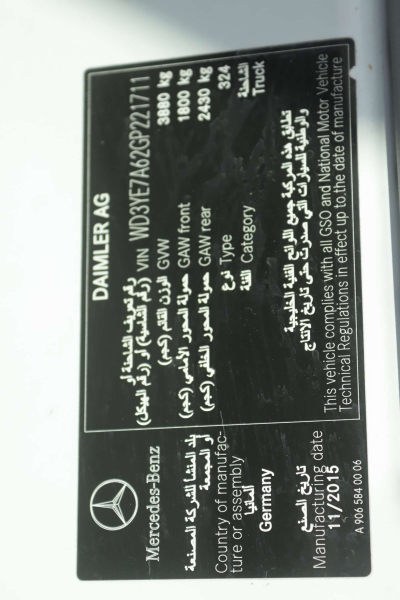 Mercedes-Benz
بلد المنشأ للشركة المصنعة
أو المجمعة
Country of manufac-
ture or assembly
المانيا
Germany
تاريخ الصنع
Manufacturing date
11/2015
A 906 584 00 06
DAIMLER AG
رقم تعريف الشاحنة أو
(رقم الشاسية) أو (رقم الهيكل) VIN WD3YE7A62GP221711
الوزن القائم (كجم) GVW 3880 kg
حمولة المحور الأمامي (كجم) GAW front 1800 kg
حمولة المحور الخلفي (كجم) GAW rear 2430 kg
نوع Type 324
الفئة Category الشاحنة
Truck
تطابق هذه المركبة جميع اللوائح الفنية الخليجية
والوطنية للسيارات التي صدرت حتى تاريخ الانتاج
This vehicle complies with all GSO and National Motor Vehicle
Technical Regulations in effect up to the date of manufacture